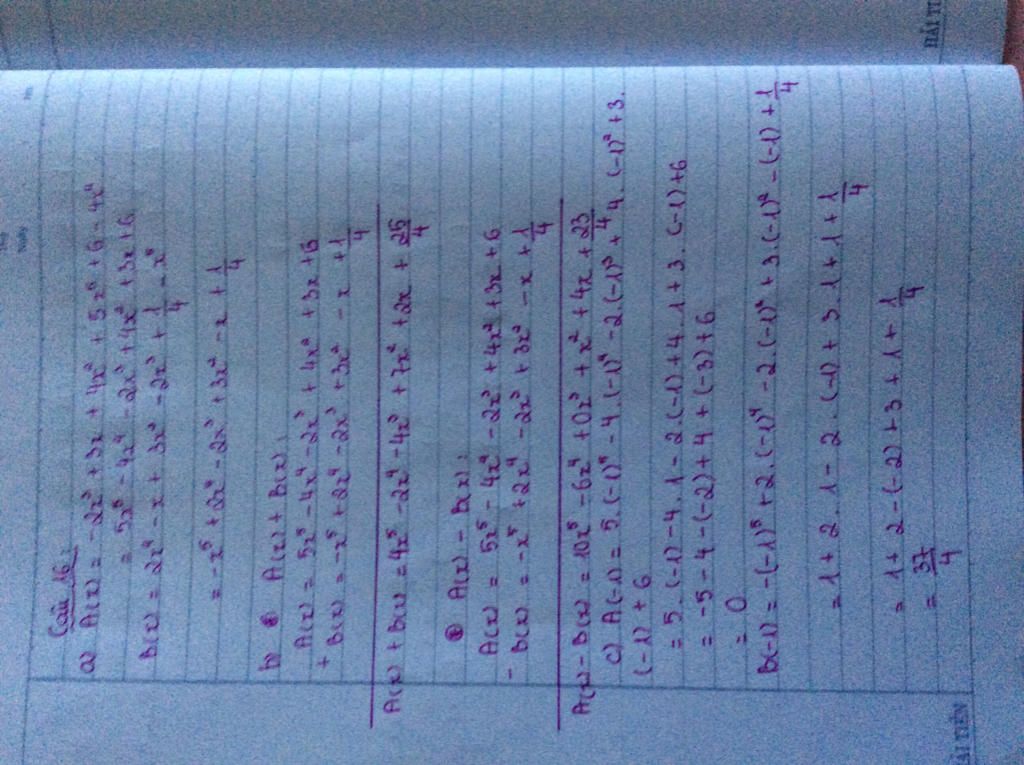 HẢI TIẾN
Câu 16:
a) A(x) = -2x³ + 3x + 4x² + 5x⁵ + 6 - 4x⁴
= 5x⁵ - 4x⁴ - 2x³ + 4x² + 3x + 6
B(x) = 2x⁴ - x + 3x² - 2x³ + 1/4 - x⁵
= -x⁵ + 2x⁴ - 2x³ + 3x² - x + 1/4
b) * A(x) + B(x):
A(x) = 5x⁵ - 4x⁴ - 2x³ + 4x² + 3x + 6
+ B(x) = -x⁵ + 2x⁴ - 2x³ + 3x² - x + 1/4
A(x) + B(x) = 4x⁵ - 2x⁴ - 4x³ + 7x² + 2x + 25/4
* A(x) - B(x):
A(x) = 5x⁵ - 4x⁴ - 2x³ + 4x² + 3x + 6
- B(x) = -x⁵ + 2x⁴ - 2x³ + 3x² - x + 1/4
A(x) - B(x) = 10x⁵ - 6x⁴ + 0x³ + x² + 4x + 23/4
c) A(-1) = 5.(-1)⁵ - 4.(-1)⁴ - 2.(-1)³ + 4.(-1)² + 3.
(-1) + 6
= 5.(-1) - 4.1 - 2.(-1) + 4.1 + 3.(-1) + 6
= -5 - 4 - (-2) + 4 + (-3) + 6
= 0
B(-1) = -(-1)⁵ + 2.(-1)⁴ - 2.(-1)³ + 3.(-1)² - (-1) + 1/4
= 1 + 2.1 - 2.(-1) + 3.1 + 1 + 1/4
= 1 + 2 - (-2) + 3 + 1 + 1/4
= 37/4
HẢI TIẾN